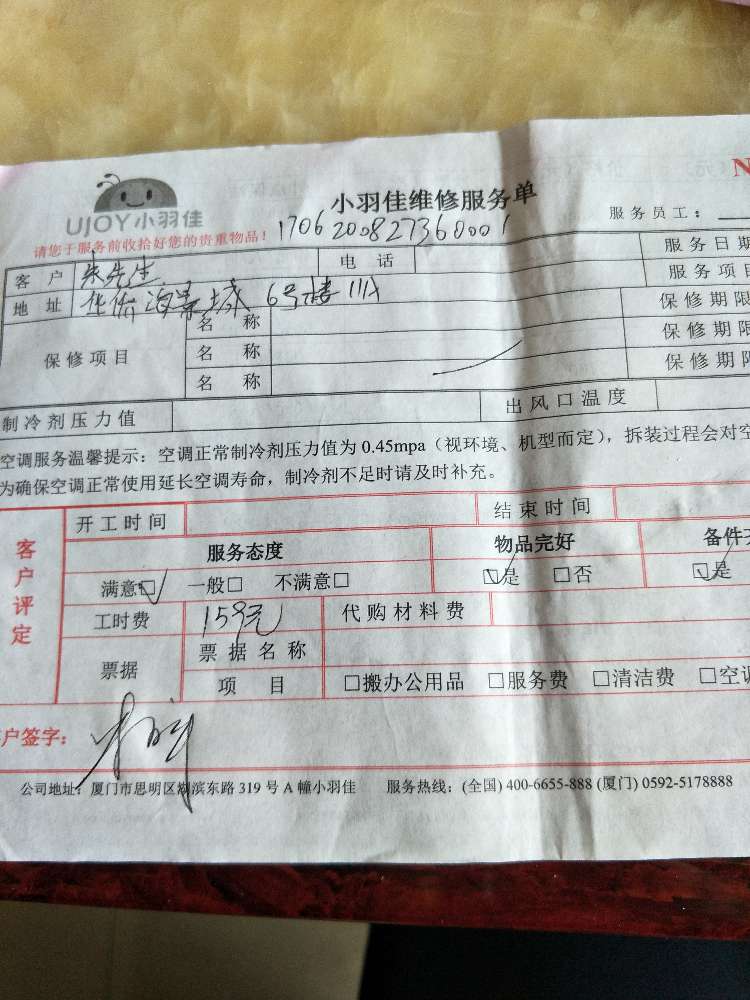 UJOY小羽佳
小羽佳维修服务单
N
请您于服务前收拾好您的贵重物品！
服务员工：
1706200827360001
客户 朱先生 电话 服务日期
地址 6号楼 服务项目
保修项目 名称 保修期限
名称 保修期限
名称 保修期限
制冷剂压力值 出风口温度
空调服务温馨提示：空调正常制冷剂压力值为 0.45mpa（视环境、机型而定），拆装过程会对空
为确保空调正常使用延长空调寿命，制冷剂不足时请及时补充。
客户评定
开工时间 结束时间
服务态度 物品完好 备件
满意☑ 一般□ 不满意□ ☑是 □否 ☑是
工时费 159元 代购材料费
票据 票据名称
项目 □搬办公用品 □服务费 □清洁费 □空调
户签字：
公司地址：厦门市思明区湖滨东路 319 号 A 幢小羽佳 服务热线：(全国) 400-6655-888 (厦门) 0592-5178888